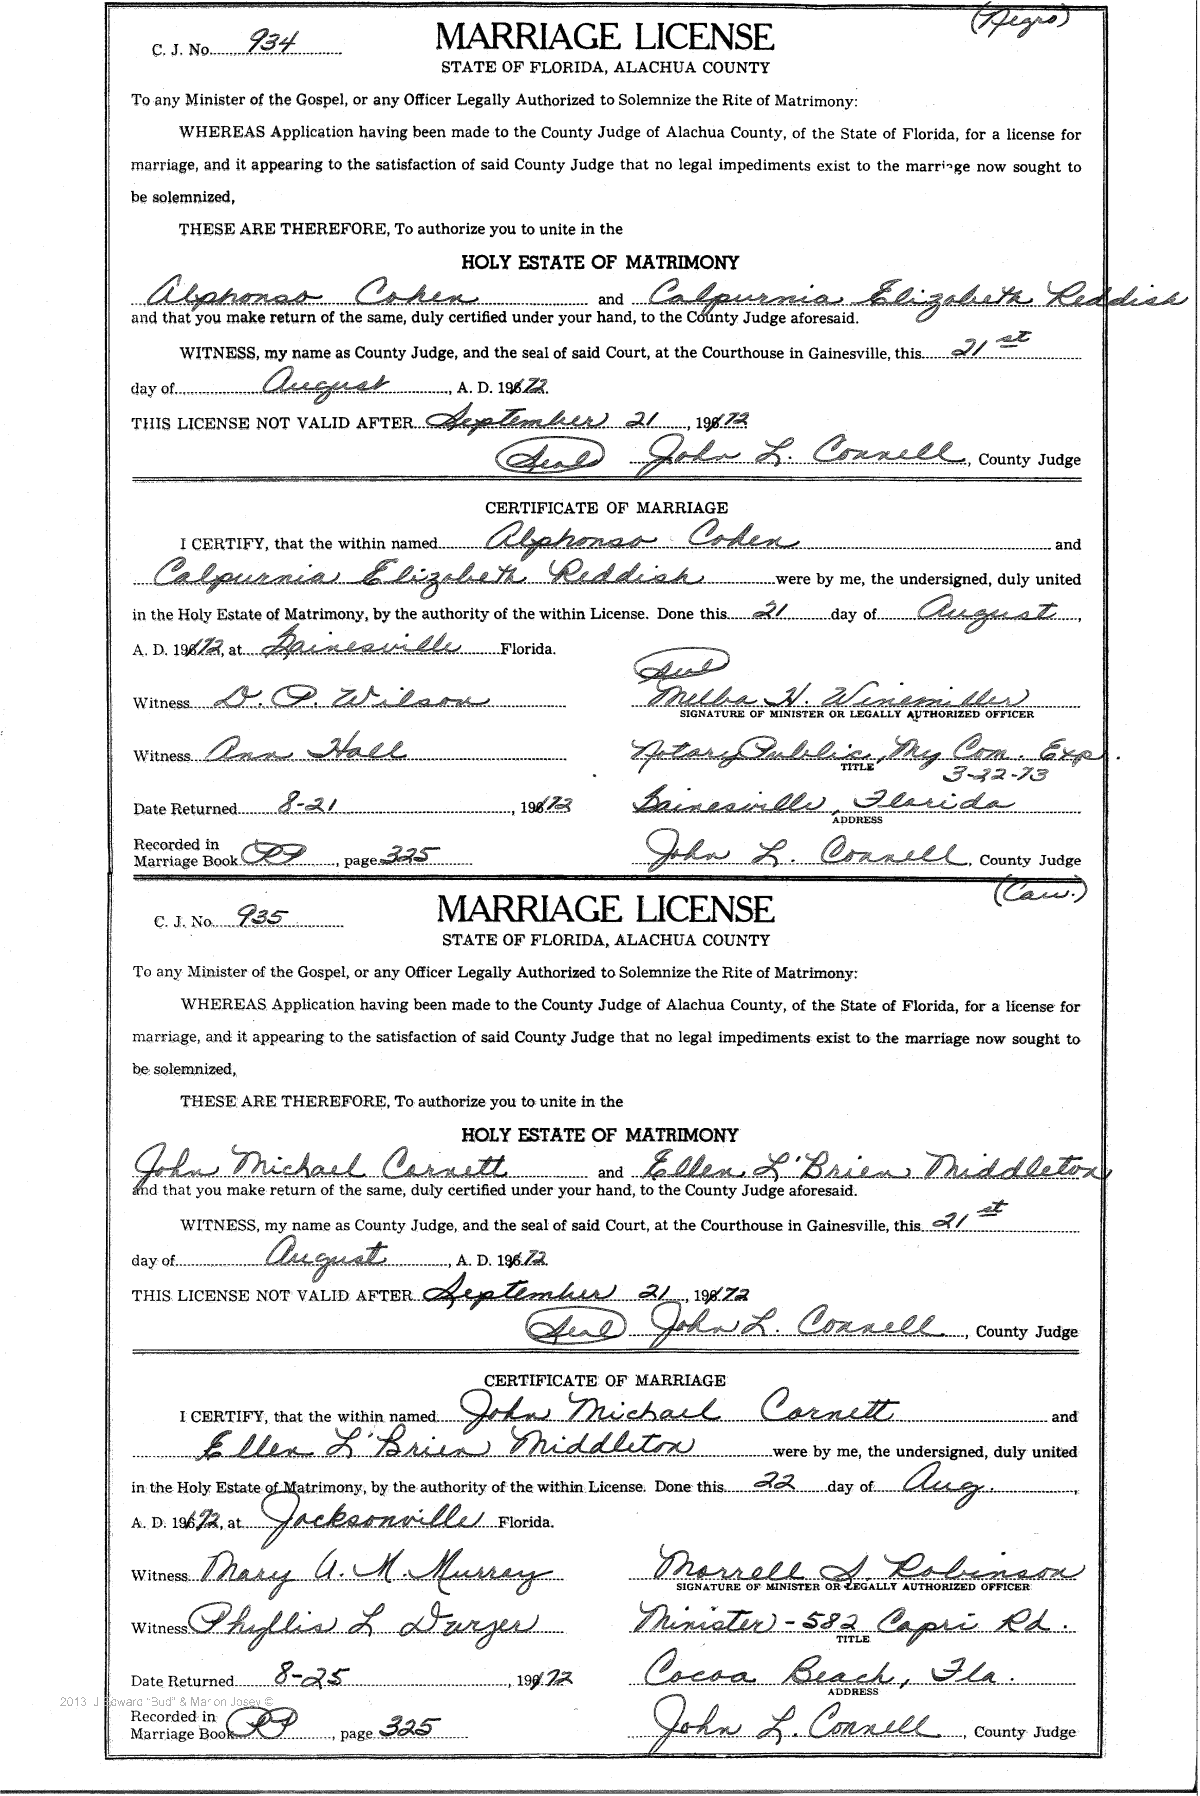 (Negro)
C. J. No. 934
MARRIAGE LICENSE
STATE OF FLORIDA, ALACHUA COUNTY
To any Minister of the Gospel, or any Officer Legally Authorized to Solemnize the Rite of Matrimony:
WHEREAS Application having been made to the County Judge of Alachua County, of the State of Florida, for a license for
marriage, and it appearing to the satisfaction of said County Judge that no legal impediments exist to the marriage now sought to
be solemnized,
THESE ARE THEREFORE, To authorize you to unite in the
HOLY ESTATE OF MATRIMONY
Alphonso Cohen and Calpurnia Elizabeth Reddish
and that you make return of the same, duly certified under your hand, to the County Judge aforesaid.
WITNESS, my name as County Judge, and the seal of said Court, at the Courthouse in Gainesville, this 21st
day of August, A. D. 1972.
THIS LICENSE NOT VALID AFTER September 21, 1972
(Seal) John L. Connell, County Judge
CERTIFICATE OF MARRIAGE
I CERTIFY, that the within named Alphonso Cohen and
Calpurnia Elizabeth Reddish were by me, the undersigned, duly united
in the Holy Estate of Matrimony, by the authority of the within License. Done this 21 day of August,
A. D. 1972, at Gainesville Florida.
(Seal)
Witness D. P. Wilson Melba H. Winemiller
SIGNATURE OF MINISTER OR LEGALLY AUTHORIZED OFFICER
Witness Ann Hall Notary Public, My Com. Exp.
TITLE 3-22-73
Date Returned 8-21, 1972 Gainesville, Florida
ADDRESS
Recorded in
Marriage Book PP, page 325 John L. Connell, County Judge
(Cau.)
C. J. No. 935
MARRIAGE LICENSE
STATE OF FLORIDA, ALACHUA COUNTY
To any Minister of the Gospel, or any Officer Legally Authorized to Solemnize the Rite of Matrimony:
WHEREAS Application having been made to the County Judge of Alachua County, of the State of Florida, for a license for
marriage, and it appearing to the satisfaction of said County Judge that no legal impediments exist to the marriage now sought to
be solemnized,
THESE ARE THEREFORE, To authorize you to unite in the
HOLY ESTATE OF MATRIMONY
John Michael Cornett and Ellen L'Brien Middleton
and that you make return of the same, duly certified under your hand, to the County Judge aforesaid.
WITNESS, my name as County Judge, and the seal of said Court, at the Courthouse in Gainesville, this 21st
day of August, A. D. 1972.
THIS LICENSE NOT VALID AFTER September 21, 1972
(Seal) John L. Connell, County Judge
CERTIFICATE OF MARRIAGE
I CERTIFY, that the within named John Michael Cornett and
Ellen L'Brien Middleton were by me, the undersigned, duly united
in the Holy Estate of Matrimony, by the authority of the within License. Done this 22 day of Aug.,
A. D. 1972, at Jacksonville Florida.
Witness Mary A. M. Murray Morrell S. Robinson
SIGNATURE OF MINISTER OR LEGALLY AUTHORIZED OFFICER
Witness Phyllis L Minister - 582 Capri Rd.
TITLE
Date Returned 8-25, 1972 Cocoa Beach, Fla.
ADDRESS
2013 J Edward "Bud" & Marion Josey ©
Recorded in
Marriage Book PP, page 325 John L. Connell, County Judge